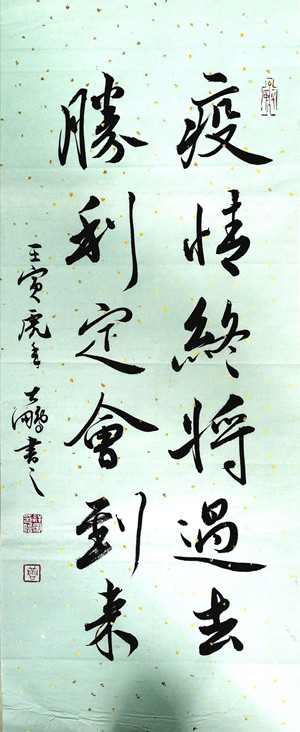 疫情終將過去
勝利定會到来
壬寅虎年 大鵬書之